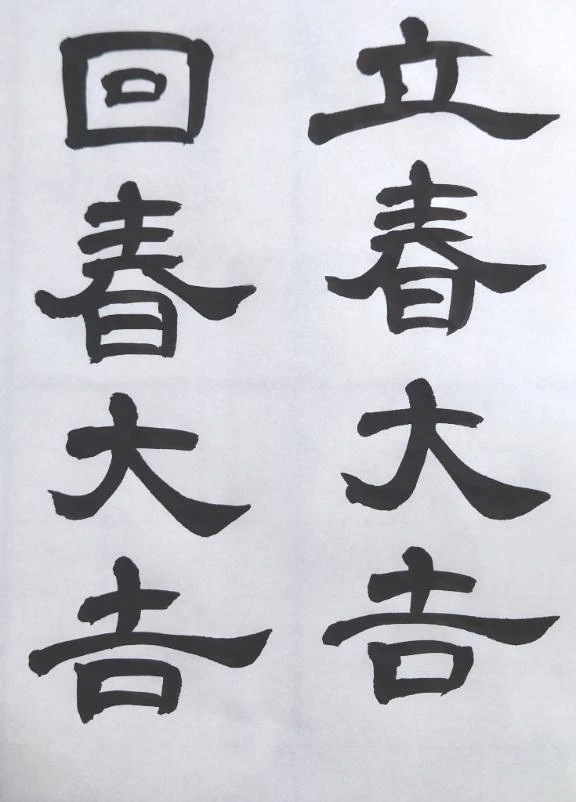 立春大吉
回春大吉